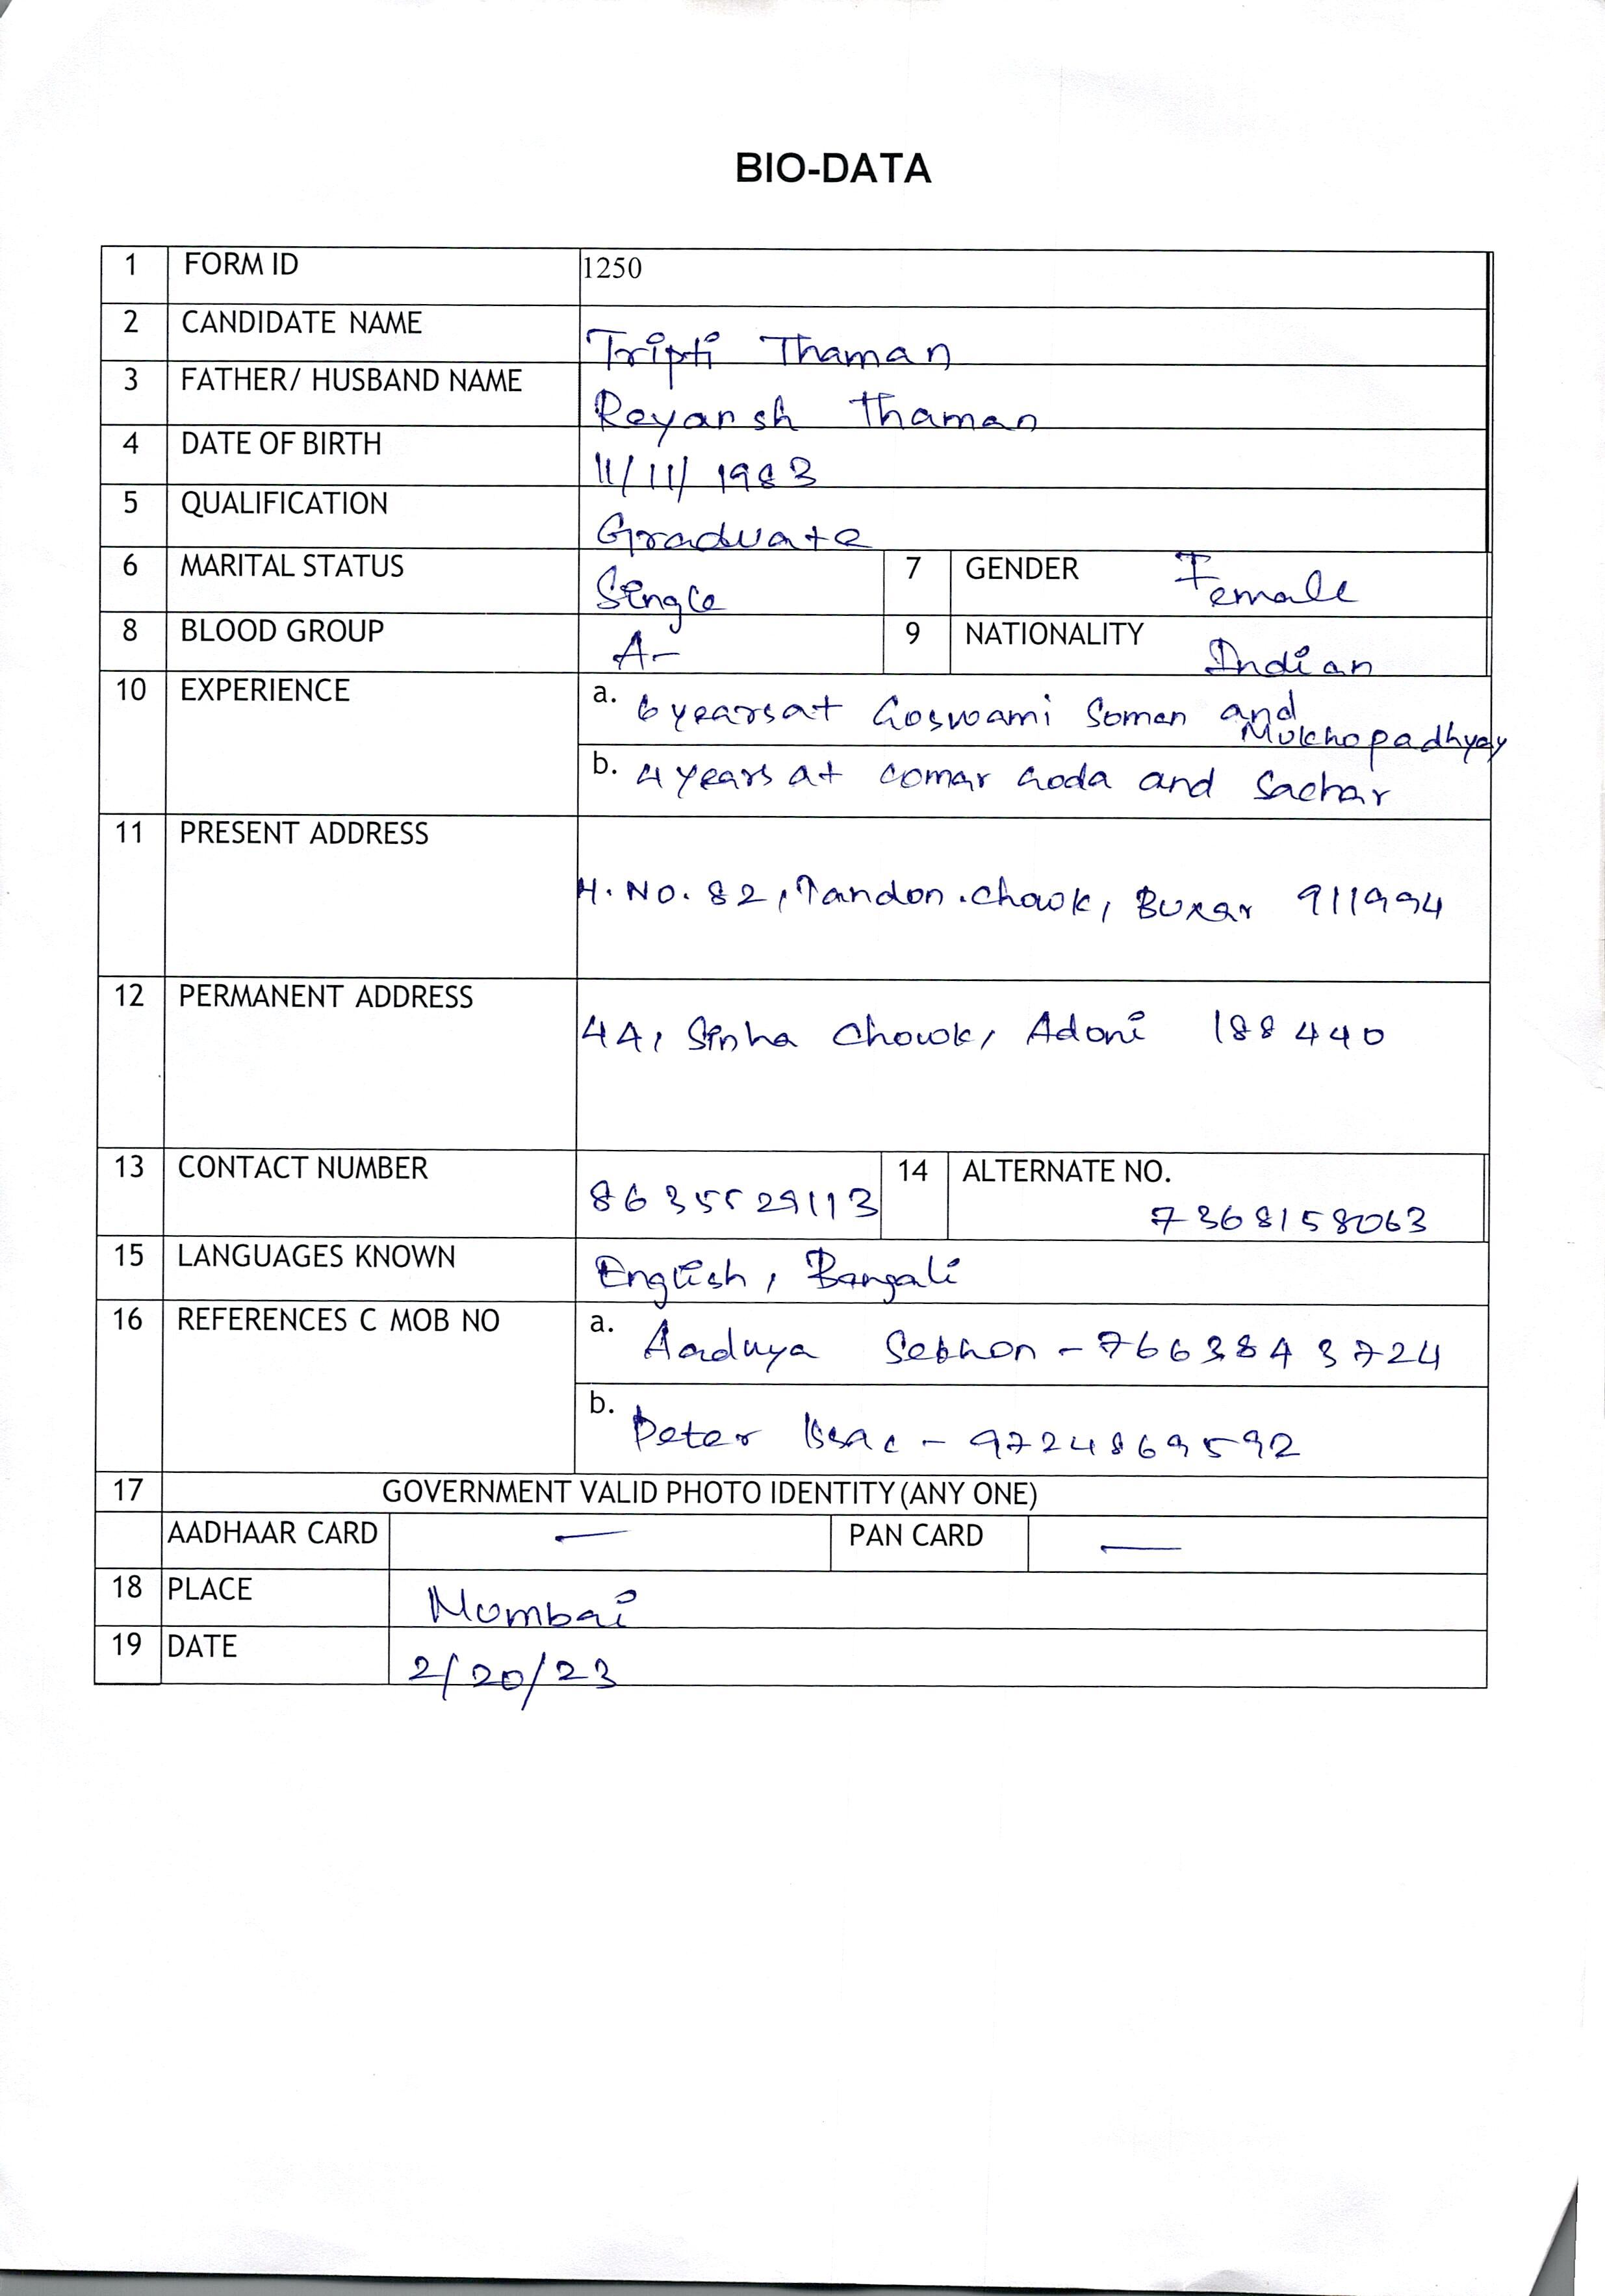 BIO-DATA
1 FORM ID 1250
2 CANDIDATE NAME Tripti Thaman
3 FATHER/ HUSBAND NAME Reyansh Thaman
4 DATE OF BIRTH 11/11/1983
5 QUALIFICATION Graduate
6 MARITAL STATUS Single 7 GENDER Female
8 BLOOD GROUP A- 9 NATIONALITY Indian
10 EXPERIENCE a. 6 years at Goswami Soman and
Mukhopadhyay
b. 4 years at Comar Goda and Sachar
11 PRESENT ADDRESS
H. No. 82, Tandon.Chowk, Buxar 911994
12 PERMANENT ADDRESS
44, Sinha Chowk, Adoni 188440
13 CONTACT NUMBER 8635529113 14 ALTERNATE NO. 7368158063
15 LANGUAGES KNOWN English, Bangali
16 REFERENCES C MOB NO a. Aaduya Sekhon - 7663843724
b. Peter Issac - 9724869592
17 GOVERNMENT VALID PHOTO IDENTITY (ANY ONE)
AADHAAR CARD — PAN CARD —
18 PLACE Mumbai
19 DATE 2/20/23